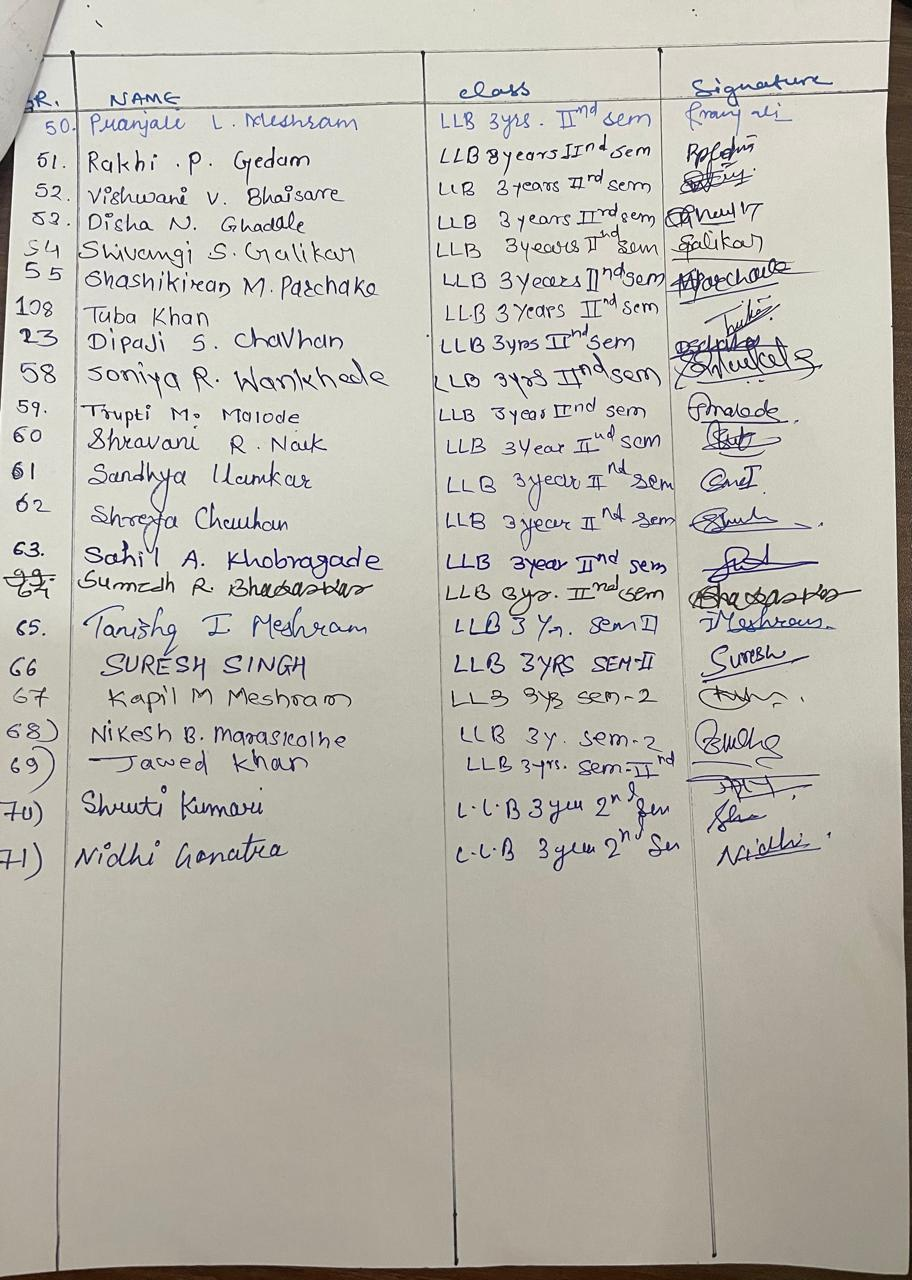 SR. NAME class Signature
50. Pranjali L. Meshram LLB 3yrs. IInd sem Pranjali
51. Rakhi .P. Gedam LLB 3years IInd sem
52. Vishwani V. Bhaisare LLB 3years IIrd sem
53. Disha N. Ghadale LLB 3years IIrd sem
54 Shivangi S. Galikar LLB 3years IInd sem Galikar
55 Shashikiran M. Parchake LLB 3Years IInd sem
108 Tuba Khan LLB 3Years IInd sem
23 Dipali S. Chavhan LLB 3yrs IInd sem
58 Soniya R. Wankhede LLB 3yrs IInd sem
59. Trupti M. Malode LLB 3year IInd sem Malode
60 Shravani R. Naik LLB 3Year IInd sem
61 Sandhya LLB 3year IInd sem
62 Shreya Chauhan LLB 3year IInd sem
63. Sahil A. Khobragade LLB 3year IInd sem
64. Sumedh R. Bhadaskar LLB 3yr. IInd sem Bhadaskar
65. Tanishq I Meshram LLB 3 Yr. sem II IMeshram
66 SURESH SINGH LLB 3YRS SEM-II Suresh
67 Kapil M Meshram LLB 3yrs sem-2
68) Nikesh B. Maraskolhe LLB 3y. sem-2
69) Jawed Khan LLB 3yrs. sem-IInd
70) Shruti Kumari L.L.B 3 year 2nd Sem
71) Nidhi Ganatra L.L.B 3 year 2nd Se Nidhi